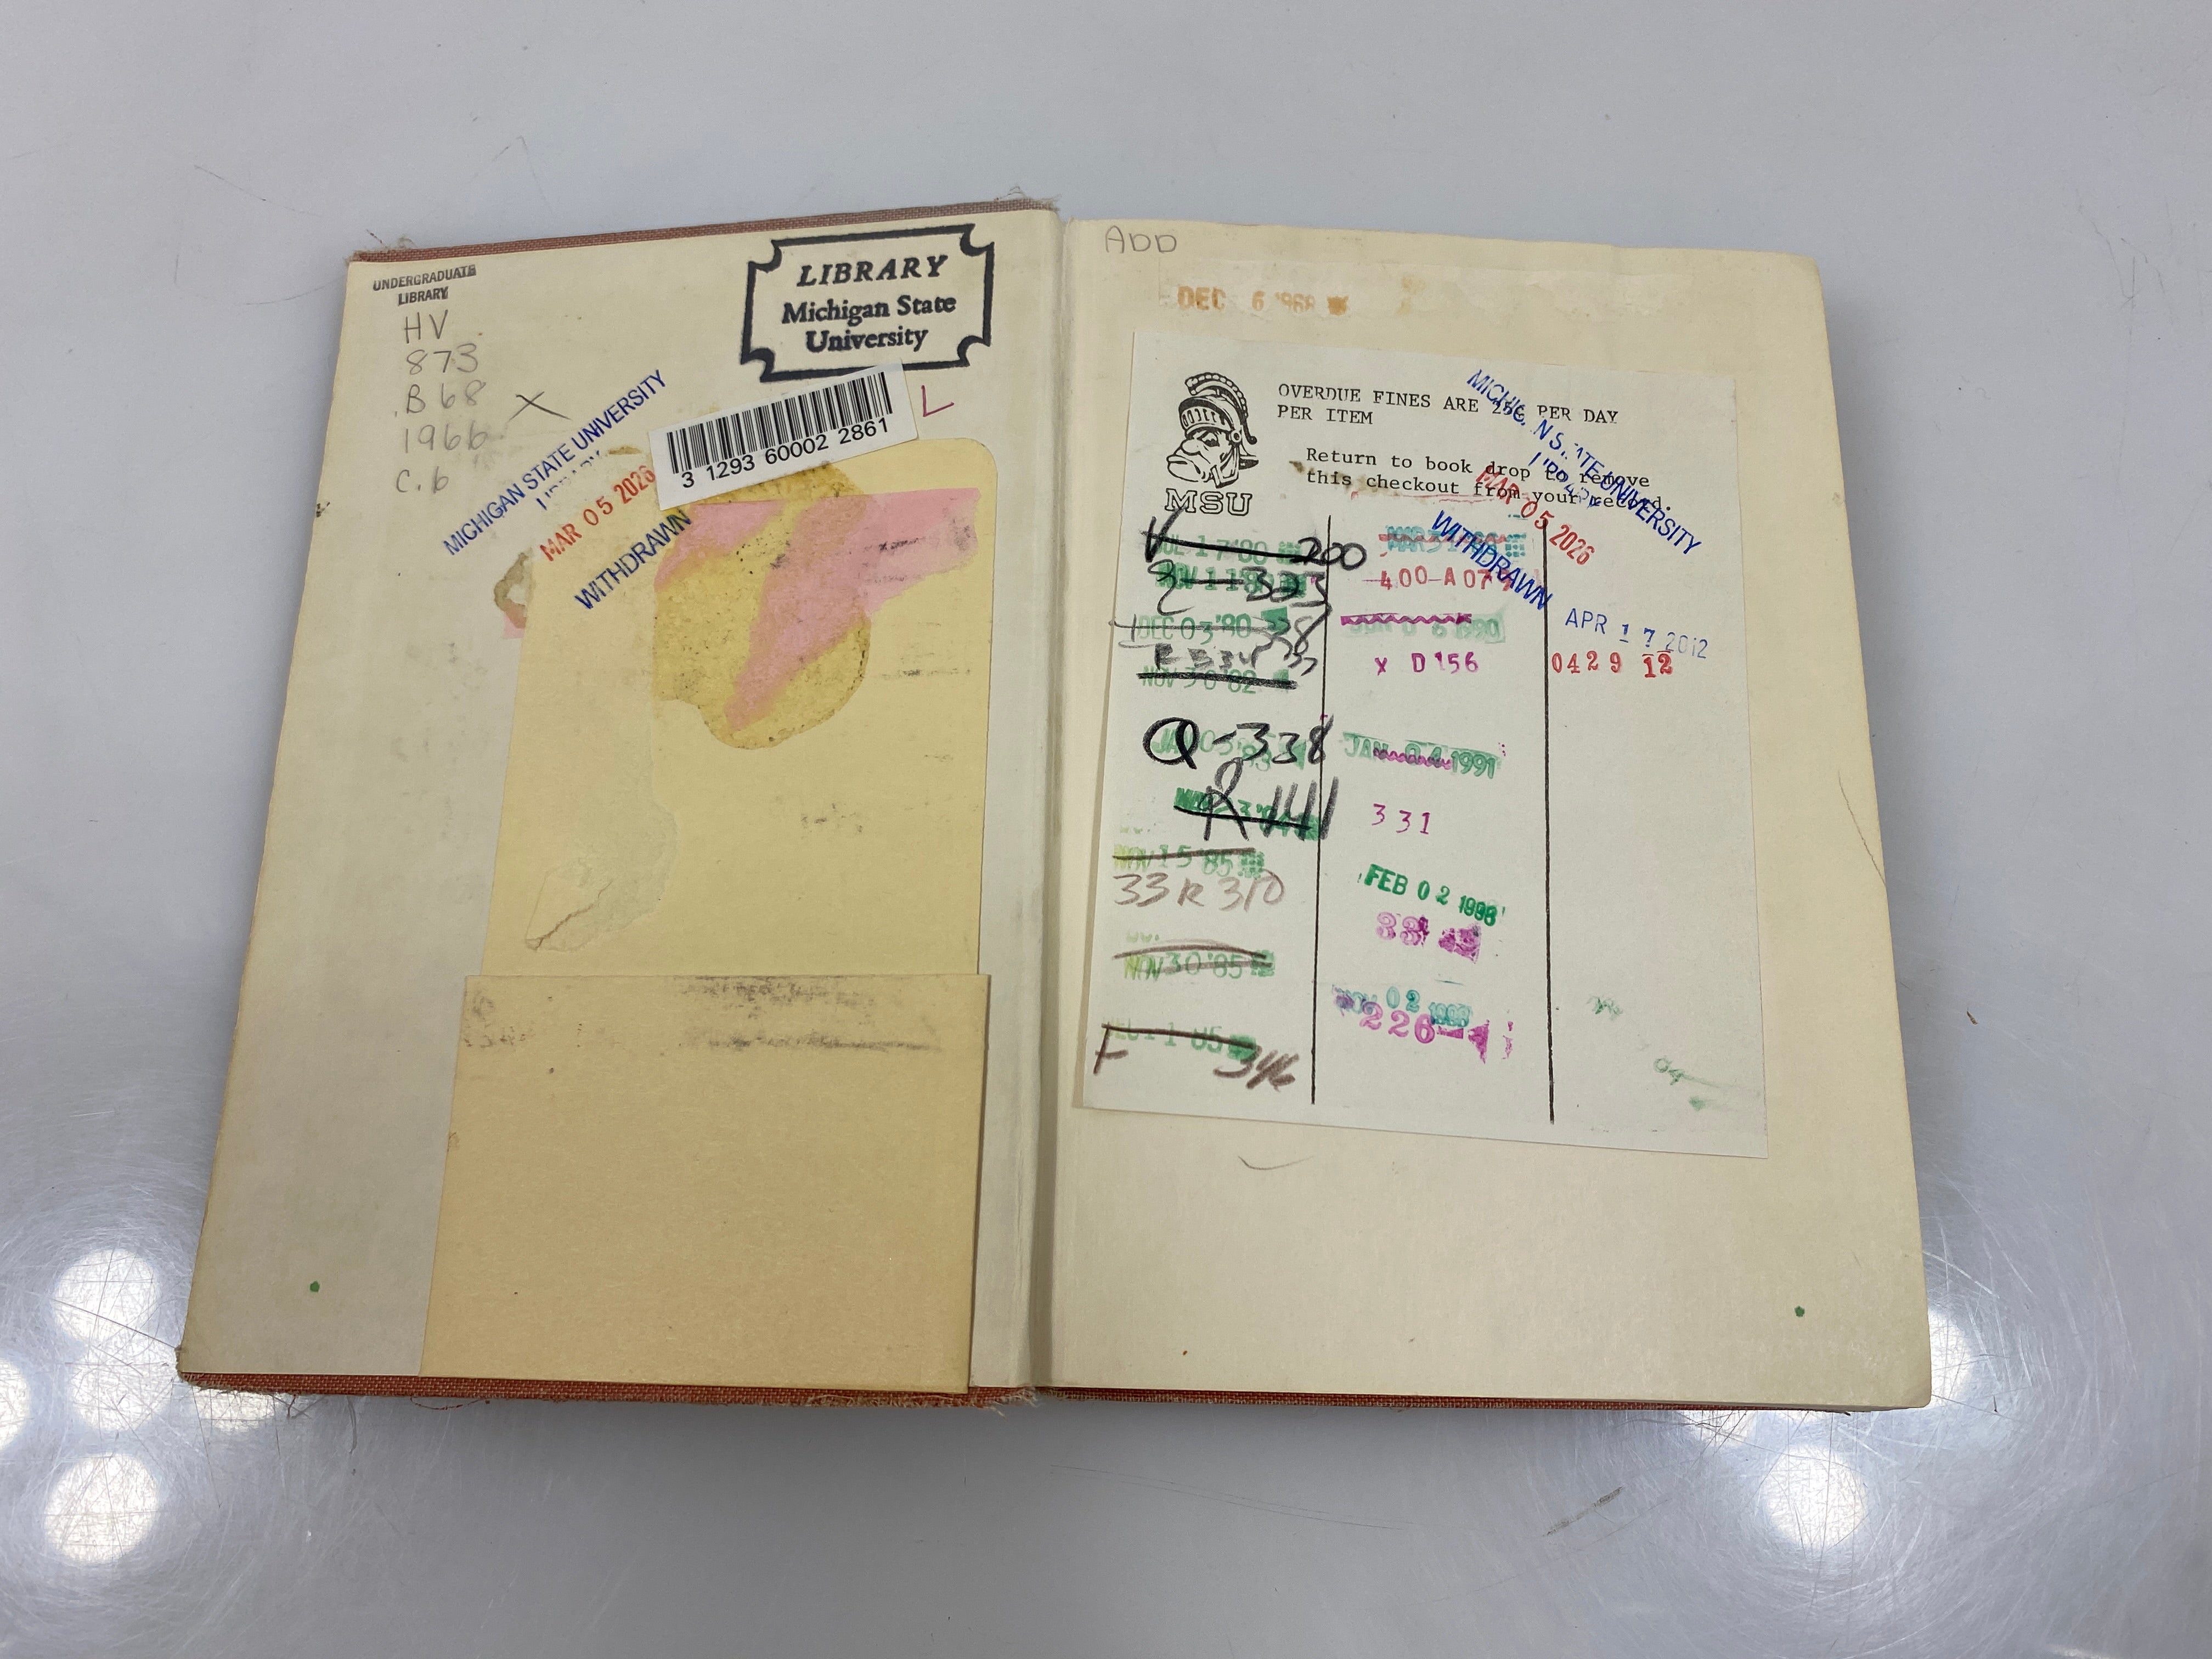 UNDERGRADUATE
LIBRARY
HV
873
.B68
1966
c.6
X
LIBRARY
Michigan State
University
3 1293 60002 2861
L
MICHIGAN STATE UNIVERSITY
LIBRARY
MAR 05 2026
WITHDRAWN
ADD
DEC 6 1968
OVERDUE FINES ARE 25¢ PER DAY
PER ITEM
Return to book drop to remove
this checkout from your record.
MSU
MICHIGAN STATE UNIVERSITY
LIBRARY
MAR 05 2026
WITHDRAWN
V 200
17 '80
NOV 1 1 '80
333
DEC 03 '80
R 334
NOV 30 82
Q-338
R 141
NOV 15 '85
33 R 310
NOV 30 '85
F 346
400-A07
1990
X D156
JAN 04 1991
331
FEB 02 1998
33
02
226
APR 17 2012
0429 12
04